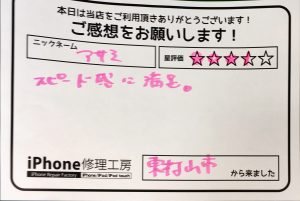 本日は当店をご利用頂きありがとうございます!
ご感想をお願いします!
ニックネーム
アサミ
星評価
スピード感に満足。
iPhone修理工房
iPhone Repair Factory
iPhone/iPad/iPod touch
東村山市
から来ました